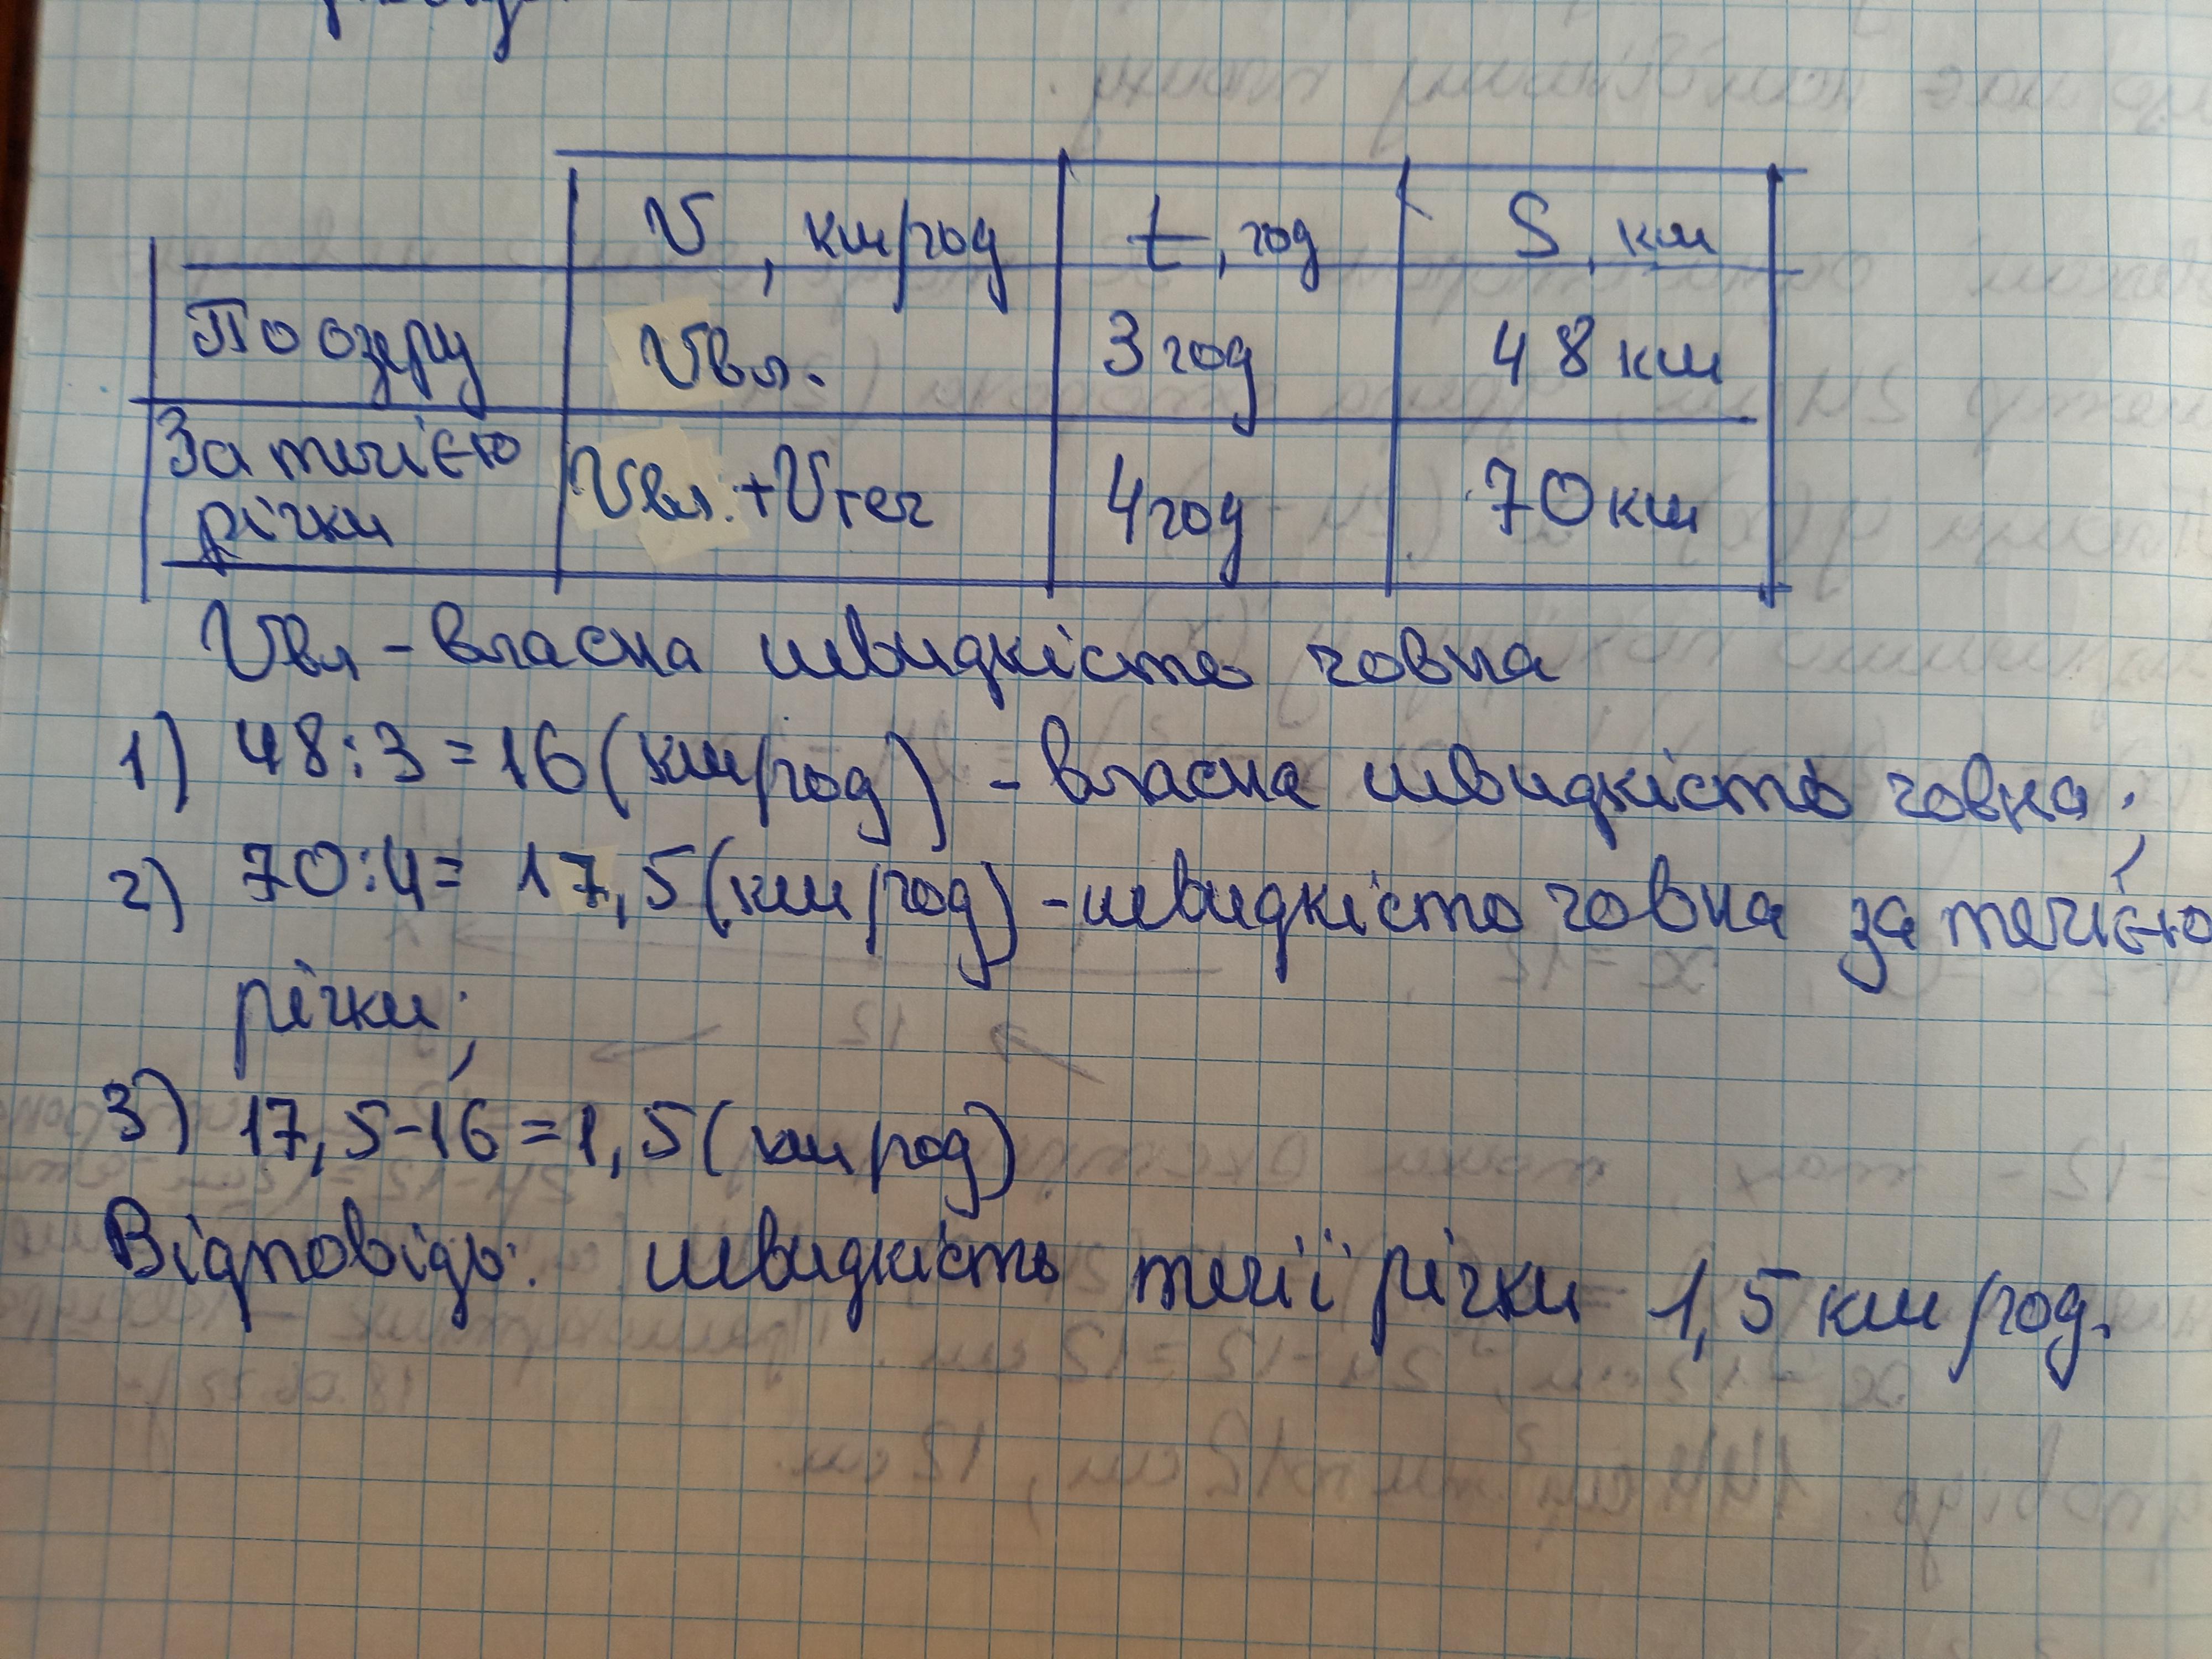 V, км/год t, год S, км
По озеру Vвл. 3 год 48 км
За течією Vвл. + Vтеч 4 год 70 км
річки
Vвл - власна швидкість човна
1) 48:3=16 (км/год) - власна швидкість човна;
2) 70:4= 17,5 (км/год) - швидкість човна за течією
річки;
3) 17,5-16=1,5 (км/год)
Відповідь: швидкість течії річки 1,5 км/год.